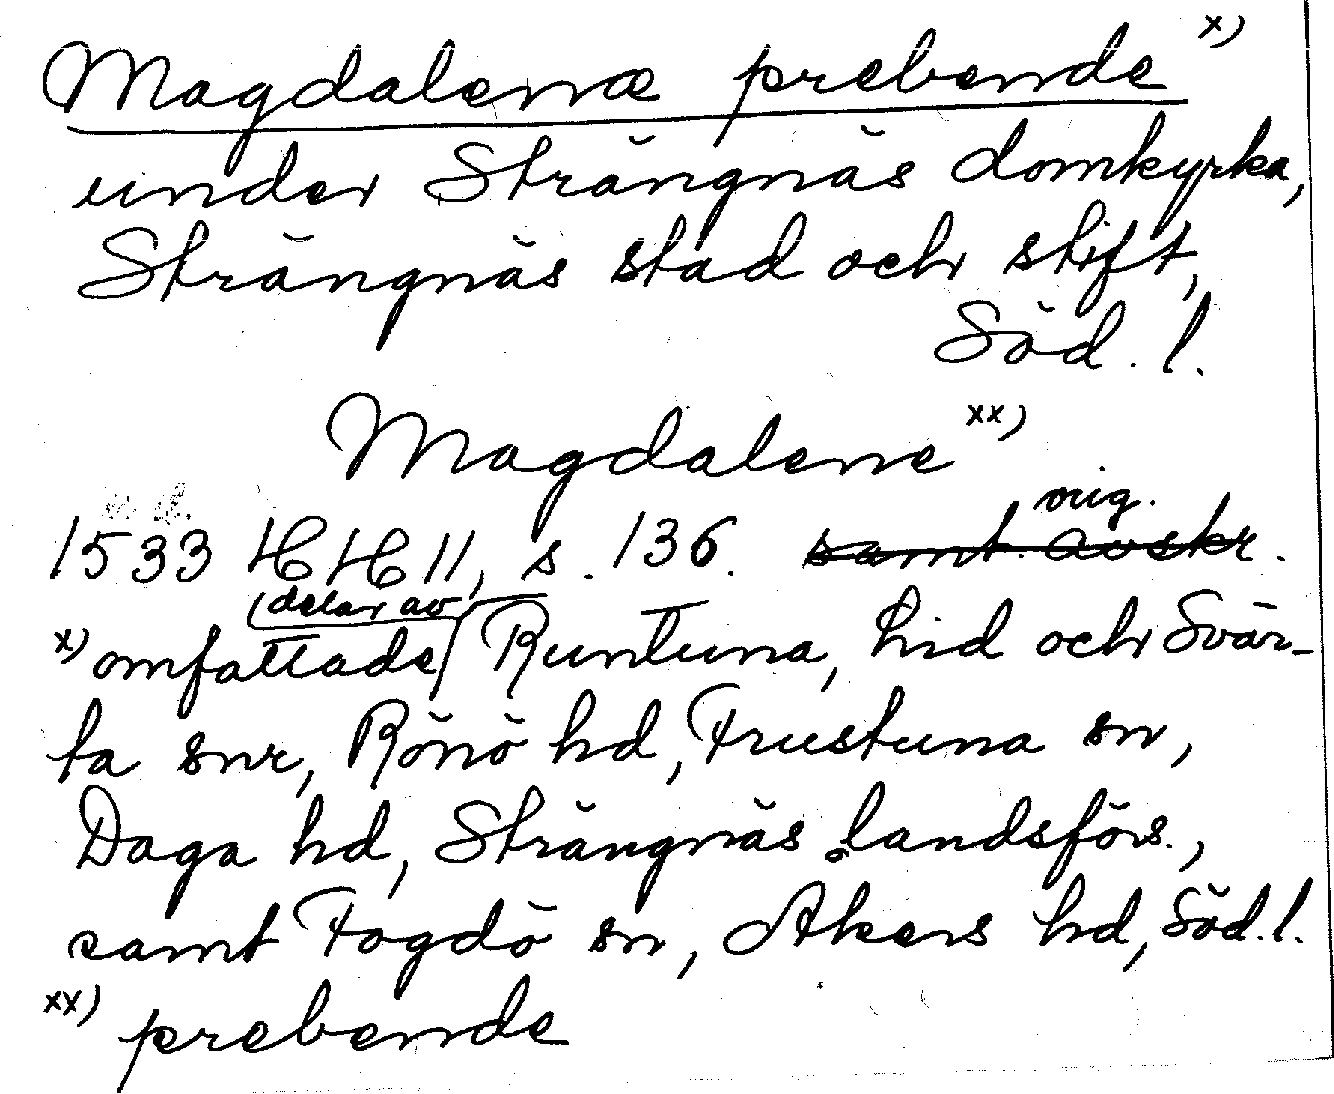 Magdalenæ prebende x)
under Strängnäs domkyrka,
Strängnäs stad och stift,
Söd. l.
Magdalene xx)
orig.
1533 HH 11, s. 136. samt. avskr.
(delar av
x) omfattade Runtuna, hd och Svär-
ta snr, Rönö hd, Frustuna sn,
Daga hd, Strängnäs landsförs.,
samt Fogdö sn, Åkers hd, Söd. l.
xx) prebende